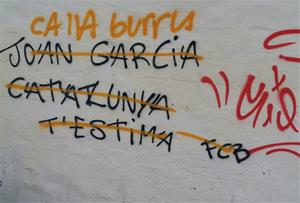 CAllA burrus
JOAN GARCIA
CATALUNYA
T'ESTIMA FCB